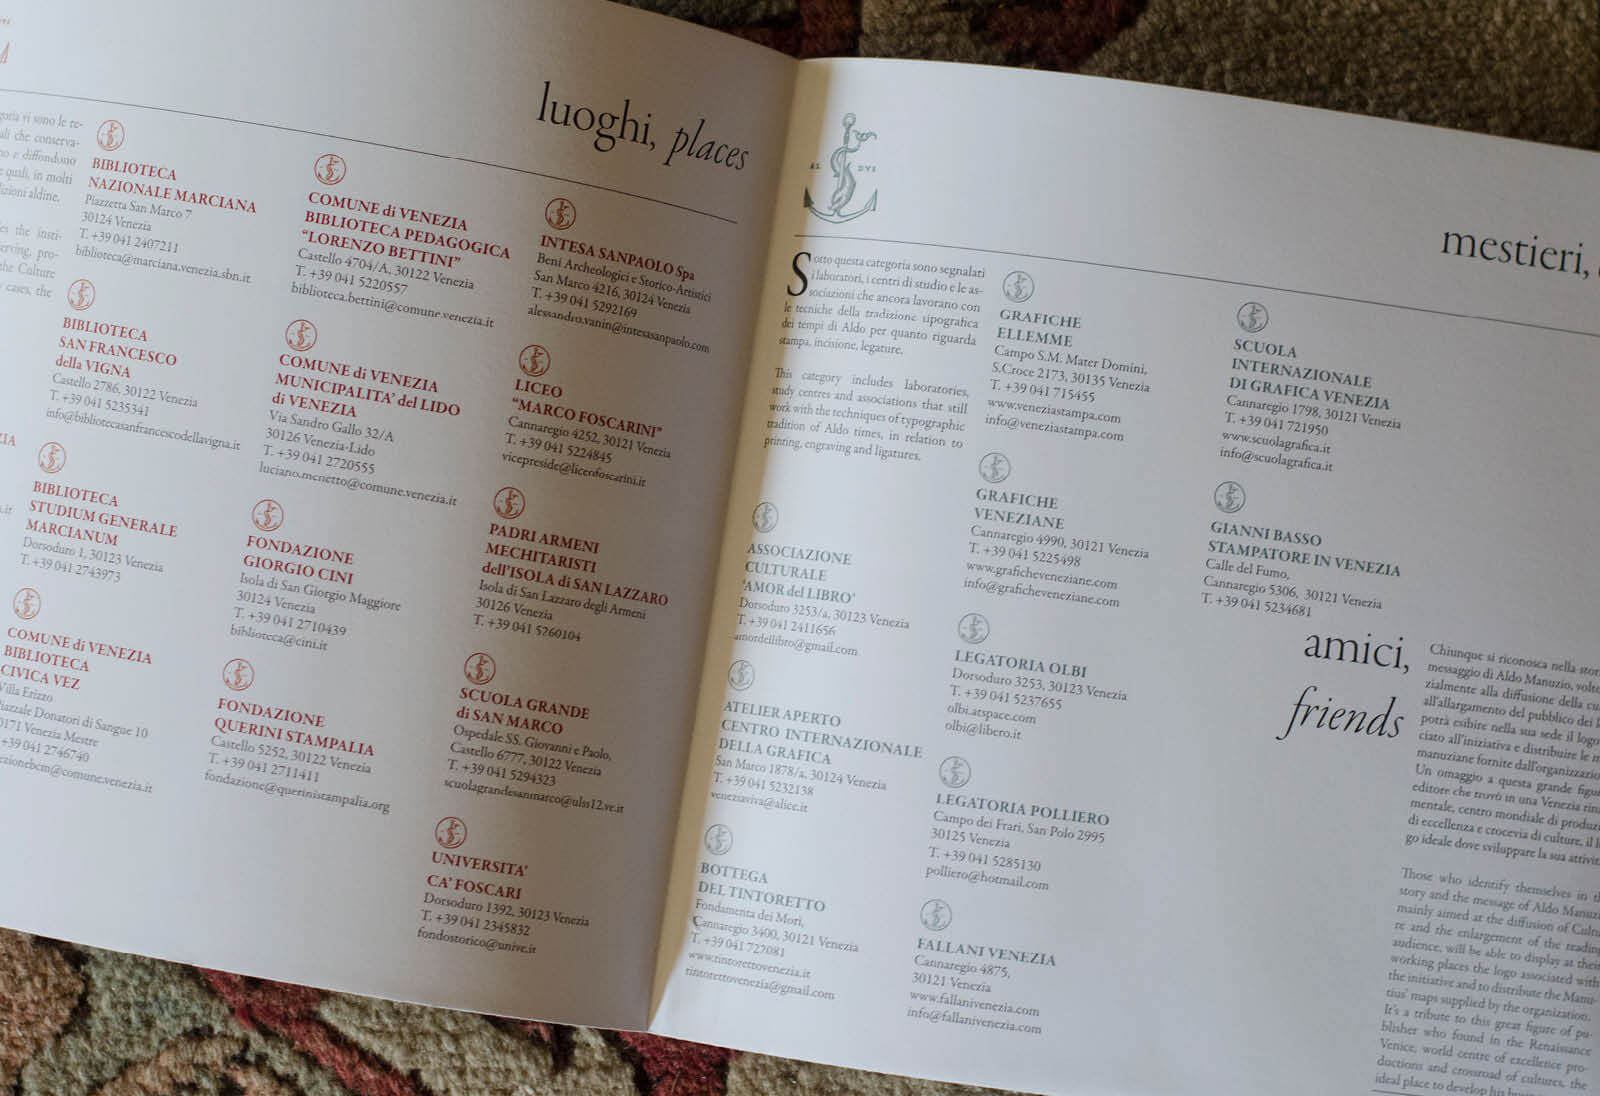 luoghi, places
goria vi sono le re-
ali che conserva-
no e diffondono
e quali, in molti
dizioni aldine.
es the insti-
erving, pro-
the Culture
y cases, the
BIBLIOTECA
NAZIONALE MARCIANA
Piazzetta San Marco 7
30124 Venezia
T. +39 041 2407211
biblioteca@marciana.venezia.sbn.it
BIBLIOTECA
SAN FRANCESCO
della VIGNA
Castello 2786, 30122 Venezia
T. +39 041 5235341
info@bibliotecasanfrancescodellavigna.it
BIBLIOTECA
STUDIUM GENERALE
MARCIANUM
Dorsoduro 1, 30123 Venezia
T. +39 041 2743973
COMUNE di VENEZIA
BIBLIOTECA
CIVICA VEZ
Villa Erizzo
Piazzale Donatori di Sangue 10
30171 Venezia Mestre
+39 041 2746740
ezionebcm@comune.venezia.it
COMUNE di VENEZIA
BIBLIOTECA PEDAGOGICA
“LORENZO BETTINI”
Castello 4704/A, 30122 Venezia
T. +39 041 5220557
biblioteca.bettini@comune.venezia.it
COMUNE di VENEZIA
MUNICIPALITA’ del LIDO
di VENEZIA
Via Sandro Gallo 32/A
30126 Venezia-Lido
T. +39 041 2720555
luciano.menetto@comune.venezia.it
FONDAZIONE
GIORGIO CINI
Isola di San Giorgio Maggiore
30124 Venezia
T. +39 041 2710439
biblioteca@cini.it
FONDAZIONE
QUERINI STAMPALIA
Castello 5252, 30122 Venezia
T. +39 041 2711411
fondazione@querinistampalia.org
INTESA SANPAOLO Spa
Beni Archeologici e Storico-Artistici
San Marco 4216, 30124 Venezia
T. +39 041 5292169
alessandro.vanin@intesasanpaolo.com
LICEO
“MARCO FOSCARINI”
Cannaregio 4252, 30121 Venezia
T. +39 041 5224845
vicepreside@liceofoscarini.it
PADRI ARMENI
MECHITARISTI
dell’ISOLA di SAN LAZZARO
Isola di San Lazzaro degli Armeni
30126 Venezia
T. +39 041 5260104
SCUOLA GRANDE
di SAN MARCO
Ospedale SS. Giovanni e Paolo,
Castello 6777, 30122 Venezia
T. +39 041 5294323
scuolagrandesanmarco@ulss12.ve.it
UNIVERSITA’
CA’ FOSCARI
Dorsoduro 1392, 30123 Venezia
T. +39 041 2345832
fondostorico@unive.it
AL DVS
mestieri,
Sotto questa categoria sono segnalati
i laboratori, i centri di studio e le as-
sociazioni che ancora lavorano con
le tecniche della tradizione tipografica
dei tempi di Aldo per quanto riguarda
stampa, incisione, legature.
This category includes laboratories,
study centres and associations that still
work with the techniques of typographic
tradition of Aldo times, in relation to
printing, engraving and ligatures.
ASSOCIAZIONE
CULTURALE
‘AMOR del LIBRO’
Dorsoduro 3253/a, 30123 Venezia
T. +39 041 2411656
amordellibro@gmail.com
ATELIER APERTO
CENTRO INTERNAZIONALE
DELLA GRAFICA
San Marco 1878/a, 30124 Venezia
T. +39 041 5232138
veneziaviva@alice.it
BOTTEGA
DEL TINTORETTO
Fondamenta dei Mori,
Cannaregio 3400, 30121 Venezia
T. +39 041 722081
www.tintorettovenezia.it
tintorettovenezia@gmail.com
GRAFICHE
ELLEMME
Campo S.M. Mater Domini,
S.Croce 2173, 30135 Venezia
T. +39 041 715455
www.veneziastampa.com
info@veneziastampa.com
GRAFICHE
VENEZIANE
Cannaregio 4990, 30121 Venezia
T. +39 041 5225498
www.graficheveneziane.com
info@graficheveneziane.com
LEGATORIA OLBI
Dorsoduro 3253, 30123 Venezia
T. +39 041 5237655
olbi.atspace.com
olbi@libero.it
LEGATORIA POLLIERO
Campo dei Frari, San Polo 2995
30125 Venezia
T. +39 041 5285130
polliero@hotmail.com
FALLANI VENEZIA
Cannaregio 4875,
30121 Venezia
www.fallanivenezia.com
info@fallanivenezia.com
SCUOLA
INTERNAZIONALE
DI GRAFICA VENEZIA
Cannaregio 1798, 30121 Venezia
T. +39 041 721950
www.scuolagrafica.it
info@scuolagrafica.it
GIANNI BASSO
STAMPATORE IN VENEZIA
Calle del Fumo,
Cannaregio 5306, 30121 Venezia
T. +39 041 5234681
amici,
friends
Chiunque si riconosca nella stor
messaggio di Aldo Manuzio, volto
zialmente alla diffusione della cu
all’allargamento del pubblico dei l
potrà esibire nella sua sede il logo
ciato all’iniziativa e distribuire le m
manuziane fornite dall’organizzazio
Un omaggio a questa grande figur
editore che trovò in una Venezia rina
mentale, centro mondiale di produzi
di eccellenza e crocevia di culture, il l
go ideale dove sviluppare la sua attivit
Those who identify themselves in th
story and the message of Aldo Manuzi
mainly aimed at the diffusion of Cultu
re and the enlargement of the reading
audience, will be able to display at their
working places the logo associated with
the initiative and to distribute the Manu-
tius’ maps supplied by the organization.
It’s a tribute to this great figure of pu-
blisher who found in the Renaissance
Venice, world centre of excellence pro-
ductions and crossroad of cultures, the
ideal place to develop his